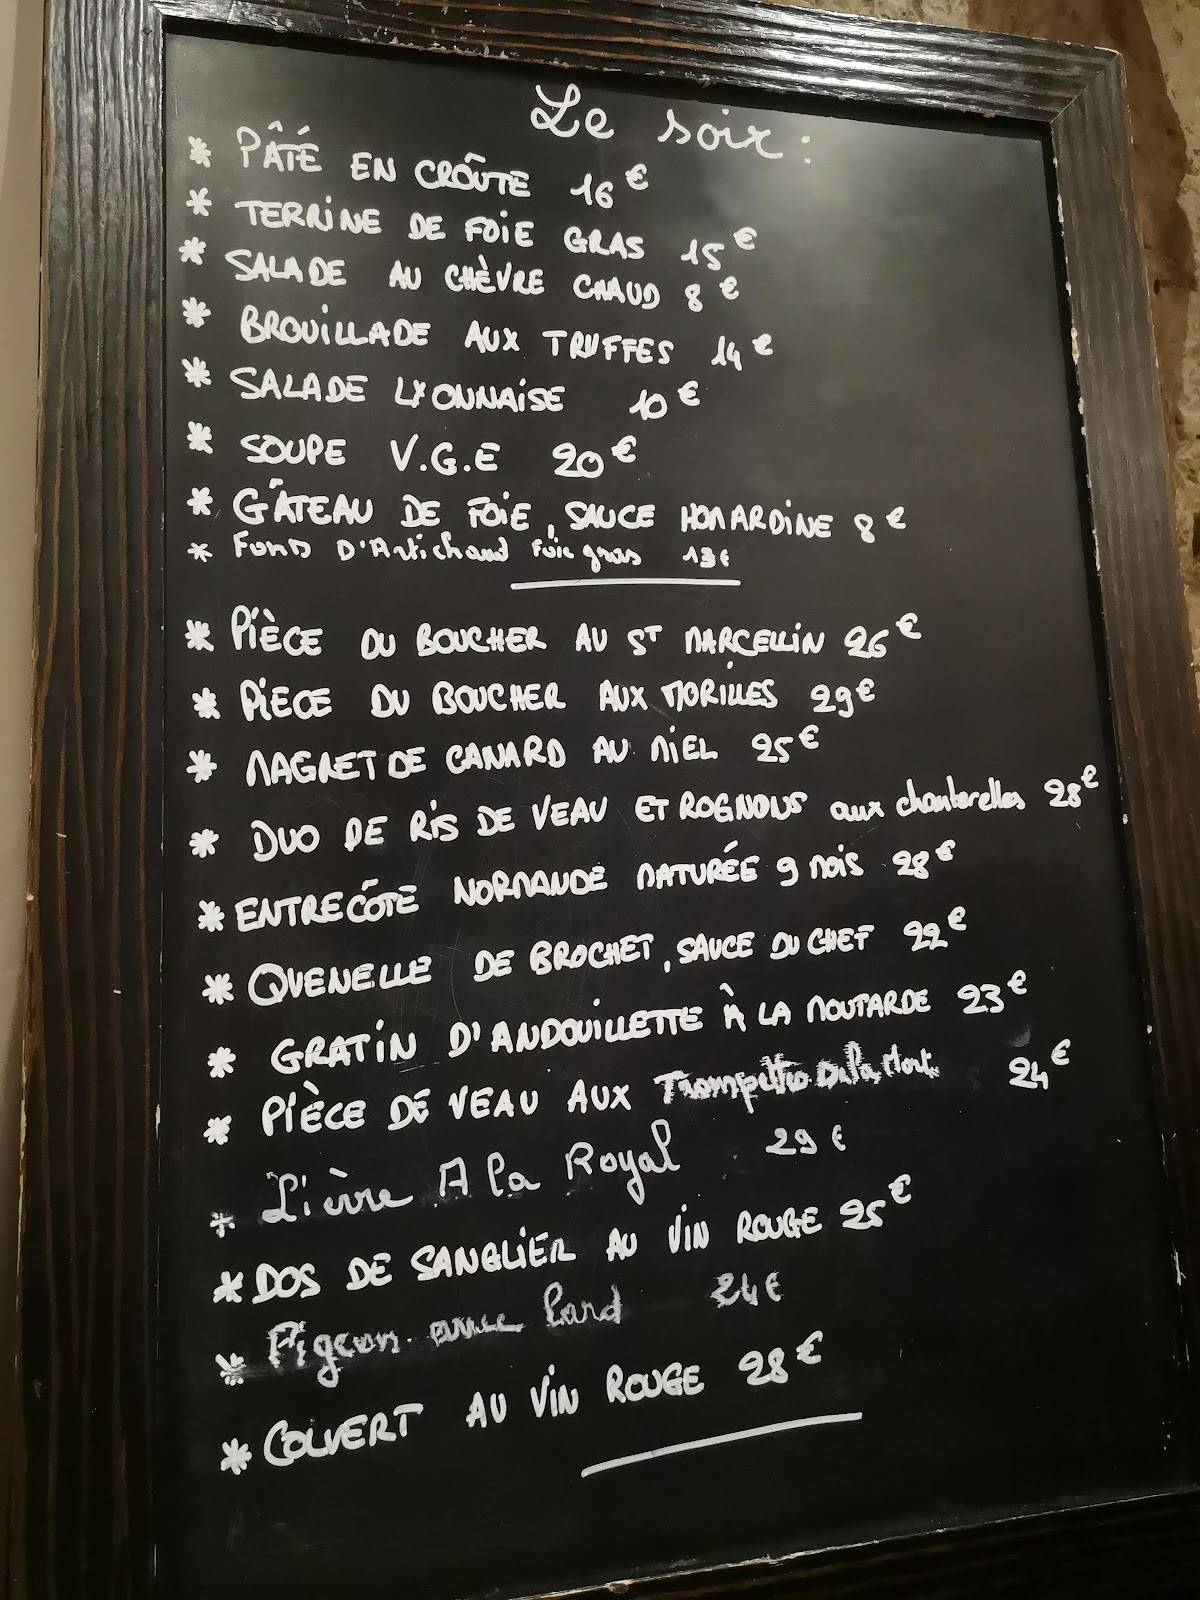 Le soir :
* PÂTÉ EN CROÛTE 16€
* TERRINE DE FOIE GRAS 15€
* SALADE AU CHÈVRE CHAUD 8€
* BROUILLADE AUX TRUFFES 14€
* SALADE LYONNAISE 10€
* SOUPE V.G.E 20€
* GÂTEAU DE FOIE, SAUCE HOMARDINE 8€
* FOND D'Artichaud Foie gras 13€
* PIÈCE DU BOUCHER AU ST MARCELLIN 26€
* PIECE DU BOUCHER AUX MORILLES 29€
* MAGRET DE CANARD AU MIEL 25€
* DUO DE RIS DE VEAU ET ROGNONS aux chanterelles 28€
* ENTRECÔTE NORMANDE MATURÉE 9 MOIS 28€
* QUENELLE DE BROCHET, SAUCE DU CHEF 22€
* GRATIN D'ANDOUILLETTE À LA MOUTARDE 23€
* PIÈCE DE VEAU AUX Trompettes De la Mort 24€
* Lièvre A la Royal 29€
* DOS DE SANGLIER AU VIN ROUGE 25€
* Pigeon lard 24€
* COLVERT AU VIN ROUGE 28€